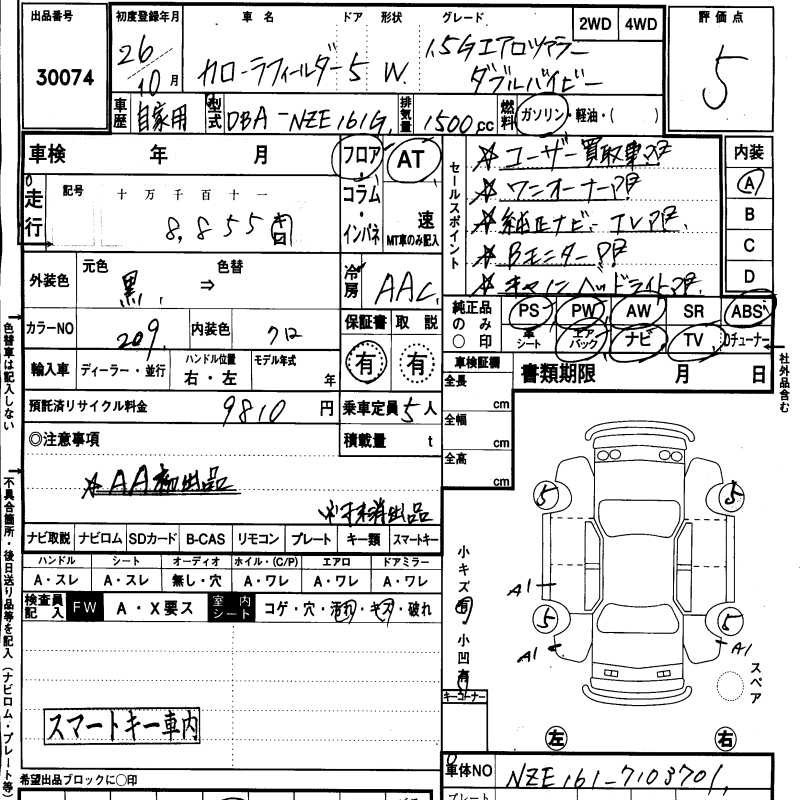 出品番号 初度登録年月 車名 ドア 形状 グレード 2WD 4WD 評価点
30074 26 10月 カローラフィールダー 5 W. 1.5Gエアロツアラー
ダブルバイビー
5
車歴 自家用 型式 DBA-NZE161G 排気量 1500cc 燃料 ガソリン・軽油・( )
車検 年 月
フロア・コラム・インパネ
AT
速
MT車のみ記入
走行 記号 十万千百十一
8,855
セールスポイント
☆ユーザー買取車
☆ワンオーナー
☆純正ナビ TV
☆Bモニター
内装
A
B
C
D
外装色 元色 黒 ⇒ 色替
冷房 AAC
カラーNO 209 内装色 クロ
保証書 取説
有 有
純正品のみ○印
PS PW AW SR ABS
革シート エアバッグ ナビ TV Dチューナー
輸入車 ディーラー・並行 ハンドル位置 右・左 モデル年式 年
車検証欄 書類期限 月 日
全長 cm
全幅 cm
全高 cm
預託済リサイクル料金 9810円 乗車定員 5人
積載量 t
◎注意事項
☆AA初出品
出品
ナビ取説 ナビロム SDカード B-CAS リモコン プレート キー類 スマートキー
ハンドル シート オーディオ ホイル・(C/P) エアロ ドアミラー
A・スレ A・スレ 無し・穴 A・ワレ A・ワレ A・ワレ
検査員記入 FW A・X要ス 室内シート コゲ・穴・汚れ・キズ・破れ
スマートキー車内
色替車は記入しない
不具合箇所・後日送り品等を記入(ナビロム・プレート等)
社外品含む
小キズ有
小凹有
5 5
5 5
A1
A1 A1
スペア
キーコーナー
左 右
希望出品ブロックに○印
車体NO NZE161-7103701
プレート